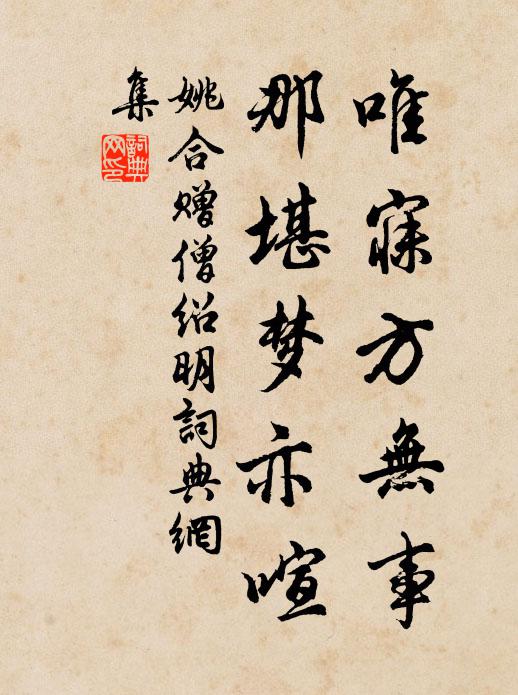 唯寐方無事
那堪梦亦喧
姚合赠僧绍明詞典網
集
詞典
网印